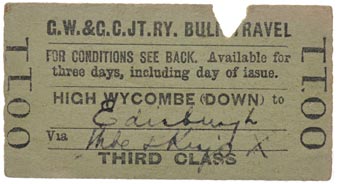 G.W.&G.C.JT.RY. BULK TRAVEL
FOR CONDITIONS SEE BACK. Available for
three days, including day of issue.
HIGH WYCOMBE (DOWN) to
Edinburgh
Via
THIRD CLASS
0011
0011